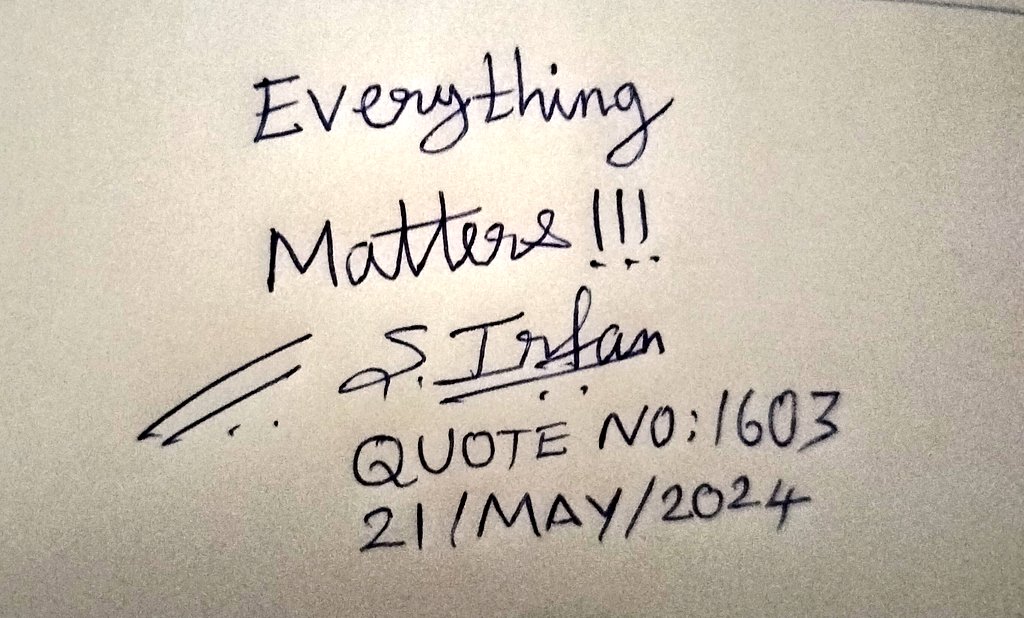 Everything
Matters!!!
S. Irfan
QUOTE NO: 1603
21/MAY/2024